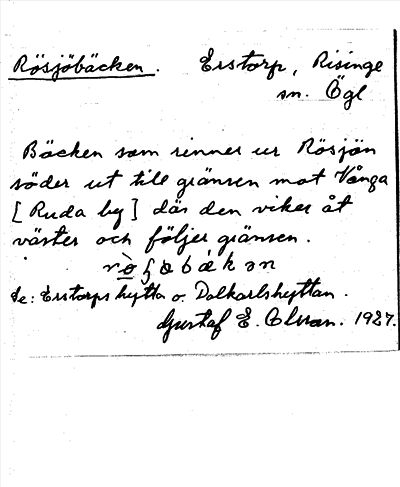 Rösjöbäcken. Erstorp, Risinge
sn. Ögl
Bäcken som rinner ur Rösjön
söder ut till gränsen mot Vånga
[Ruda by] där den viker åt
väster och följer gränsen.
Se: Erstorps hytta o. Dalkarlshyttan.
Gustaf E. Olsson. 1927.